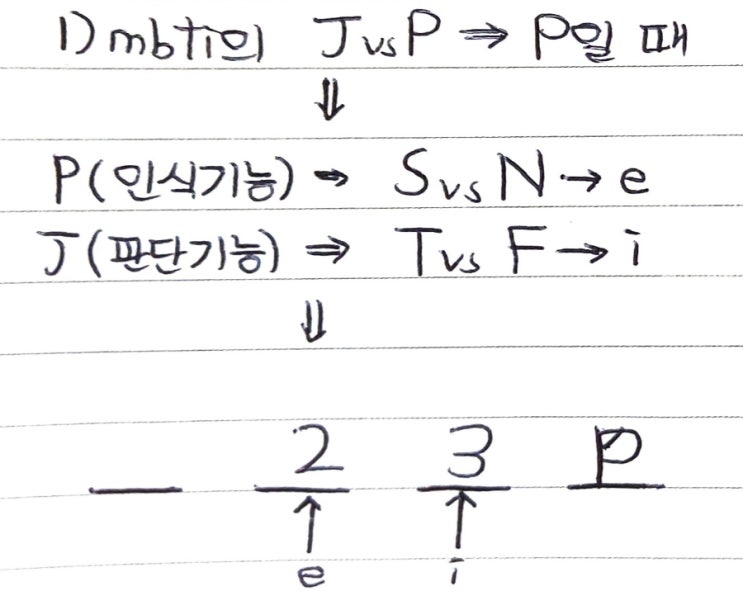 1) mbti의 J vs P ⇒ P일 때
⇓
P(인식기능) → S vs N → e
J(판단기능) ⇒ T vs F → i
⇓
_ 2 3 P
↑ ↑
e i